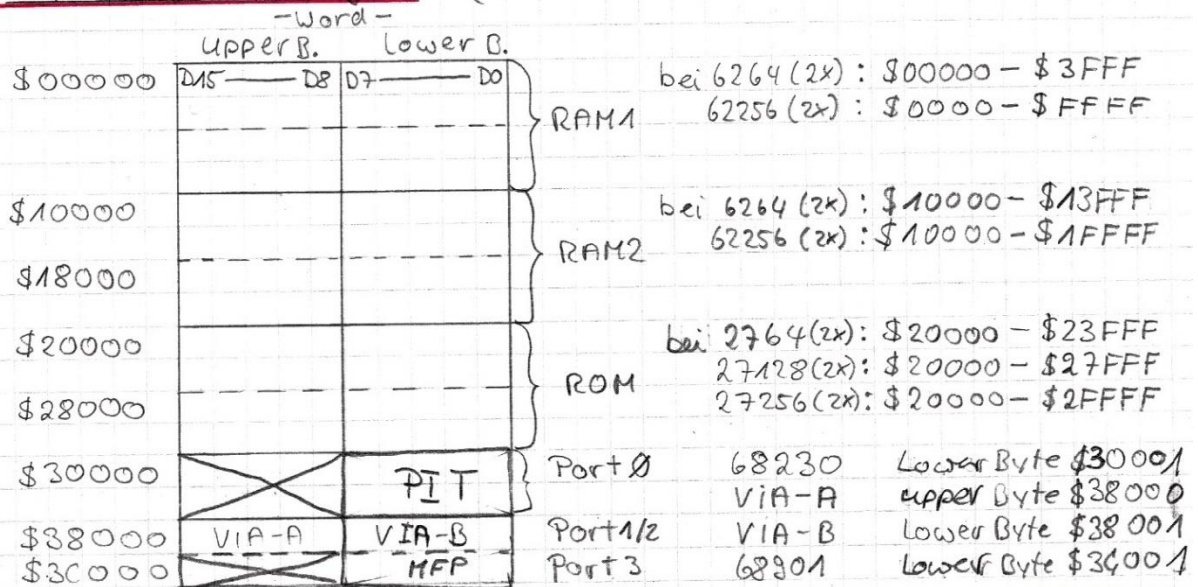 -Word-
upper B. Lower B.
$00000 D15 D8 D7 D0 bei 6264 (2x): $00000 - $3FFF
RAM1 62256 (2x): $0000 - $FFFF
$10000 bei 6264 (2x): $10000 - $13FFF
RAM2 62256 (2x): $10000 - $1FFFF
$18000
$20000 bei 2764 (2x): $20000 - $23FFF
ROM 27128 (2x): $20000 - $27FFF
$28000 27256 (2x): $20000 - $2FFFF
$30000 PIT Port Ø 68230 Lower Byte $30001
VIA-A upper Byte $38000
$38000 VIA-A VIA-B Port 1/2 VIA-B Lower Byte $38001
$3C000 MFP Port 3 68901 Lower Byte $3C001